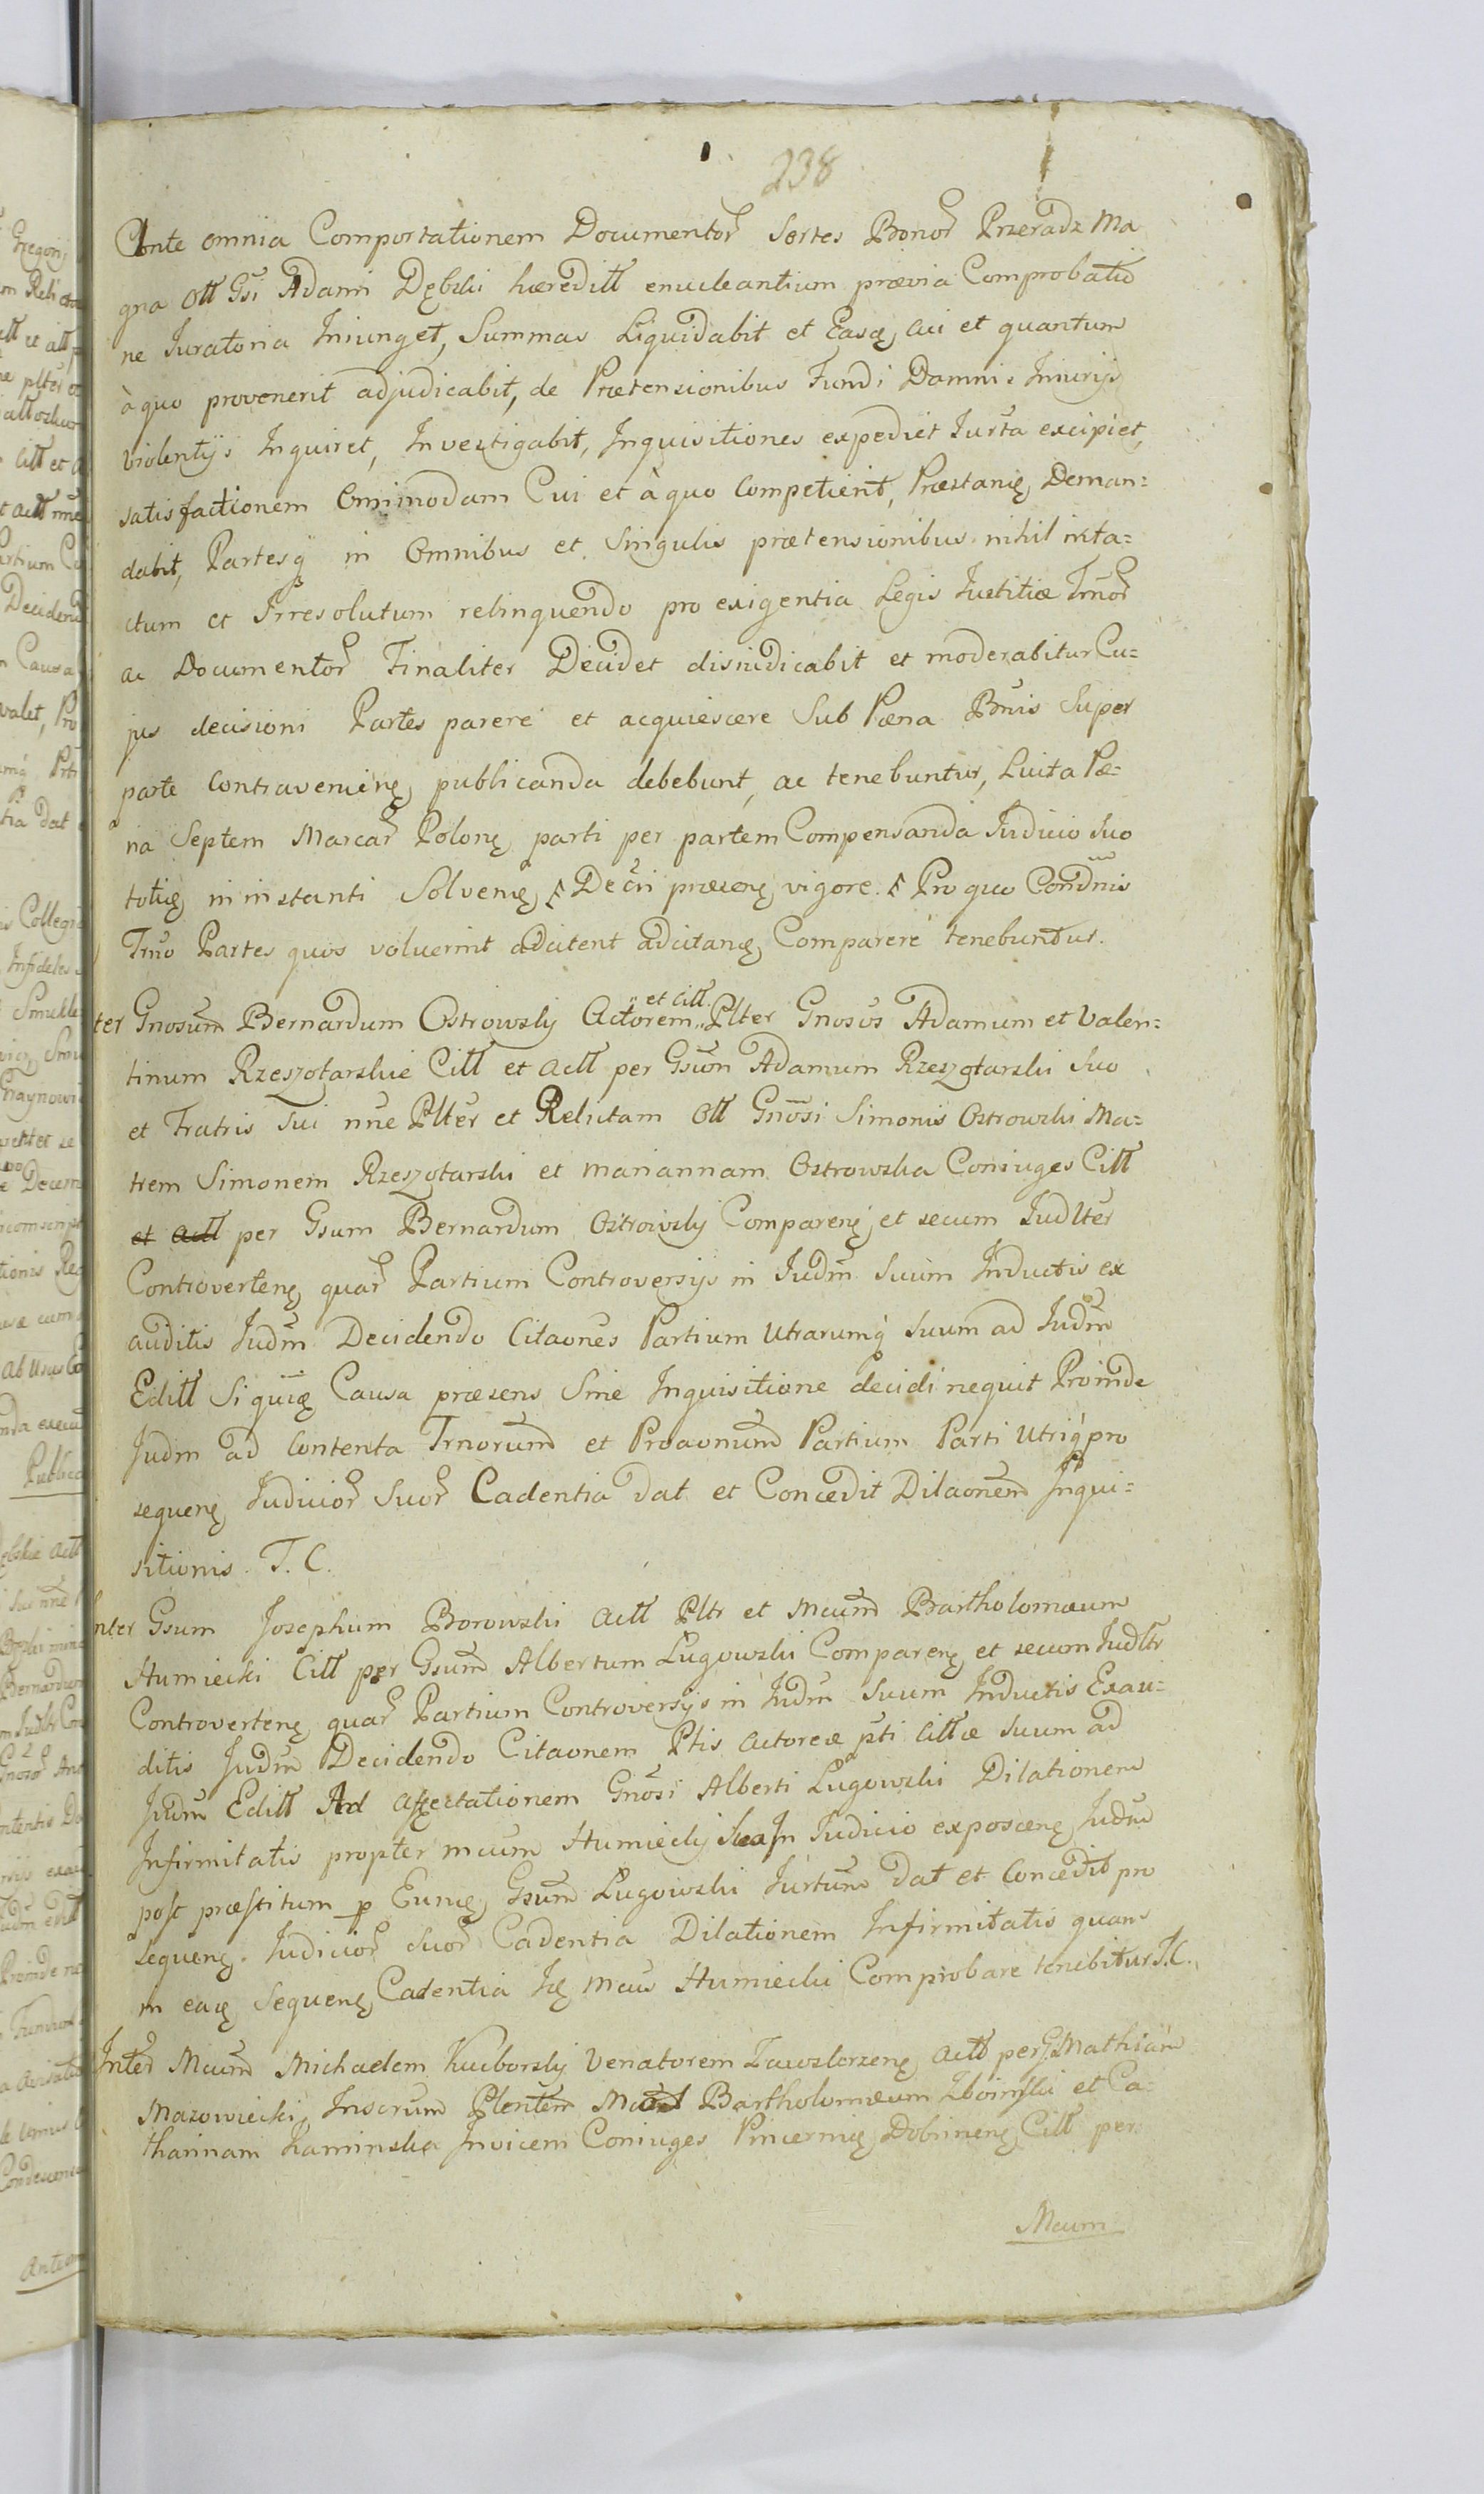 238
Ante omnia Comportationem Documentor Sortes Bonor Przeradz Ma
gna Ott Gsi Adami Dębski hæreditt enucleantium prævia Comprobatio
ne Iuratoria Iniunget, Summas Liquidabit et Easq cui et quantum
à quo provenerit adjudicabit, de Prætensionibus Fundi Damnis Iniurijs
violentijs Inquiret, Investigabit, Inquisitiones expediet Iurta excipiet,
satisfactionem Omnimodam Cui et à quo Competierit, Præstanę Deman=
dabit, Partesq in Omnibus et Singulis prætensionibus nihil inta=
ctum et Irresolutum relinquendo pro exigentia Legis Iustitiæ Trnor
ac Documentor Finaliter Decidet disiudicabit et moderabitur Cu=
jus decisioni Partes parere et acquiescere Sub Pæna Bnis Super
parte Contravenienę publicanda debebunt, ac tenebuntur, Luita Pæ=
na Septem Marcar Polonę parti per partem Compensanda Iudicio Suo
totię in instanti Solvenę Decti præsenę vigore. Pro quo Condnis
Trno Partes quos voluerint adcitent adcitanę Comparere tenebuntur.
ter Gnosum Bernardum Ostrowsky Actorem et Citt. Plter Gnosos Adamum et Valen=
tinum Rzeszotarskie Citt et Actt per Gsum Adamum Rzeszotarski Suo
et Fratris Sui nne Plter et Relictam Ott Gnosi Simonis Ostrowski Ma=
trem Simonem Rzeszotarski et Mariannam Ostrowska Coniuges Citt
et Actt per Gsum Bernardum Ostrowsky Comparenę et secum Iudlter
Controvertenę quar Partium Controversijs in Iudm Suum Inductis ex
auditis Iudm Decidendo Citaones Partium Utrarumq Suum ad Iudm
Editt Si quię Causa præsens Sine Inquisitione decidi nequit Proinde
Iudm ad Contenta Trnorum et Proaonum Partium Parti Utriq pro
sequenę Iudicior Suor Cadentia Dat et Concedit Dilaonem Inqui=
sitionis. T. C.
nter Gsum Josephum Borowski Actt Pltr et Mcum Bartholomæum
Humiecki Citt per Gsum Albertum Lugowski Comparenę et secum Iudltr
Controvertenę quar Partium Controversijs in Iudm Suum Inductis Exau=
ditis Iudm Decidendo Citaonem Ptis Actoreæ pti Cittæ Suum ad
Iudm Editt Ad Affectationem Gnosi Alberti Lugowski Dilationem
Infirmitatis propter Mcum Humiecky In Iudicio exposcenę Iudm
post præstitum p Eunię Gsum Lugowski Iurtum dat et Concedit pro
sequenę Iudicior Suor Cadentia Dilationem Infirmitatis quam
in eaę Sequenę Cadentia Ię Mcus Humiecki Comprobare tenebitur T.C.
Inter Mcum Michaelem Kucborsky Venatorem Zawskrzenę Actt per G. Mathiam
Mazowiecki Inserum Plentem Bartholomæum Zboinski et Ca=
tharinam Kaminska Invicem Coniuges Pincernię Dobrinenę Citt per
Mcum